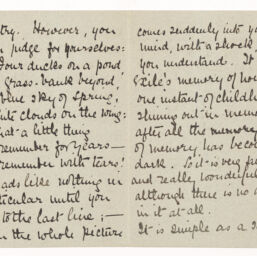 try. However, you
n judge for yourselves:
Four ducks on a pond
grass-bank beyond,
blue sky of spring,
hite clouds on the wing:
hat a little thing
remember for years—
remember with tears!
ads like nothing in
ticular until you
to the last line;—
n the whole picture
comes suddenly into yo
mind, with a shock,
you understand. It
exile's memory of ho
one instant of childh
shining out in memo
after all the memory
of memory has beco
dark. So it is very fa
and really wonderful
although there is no a
in it at all.
It is simple as a